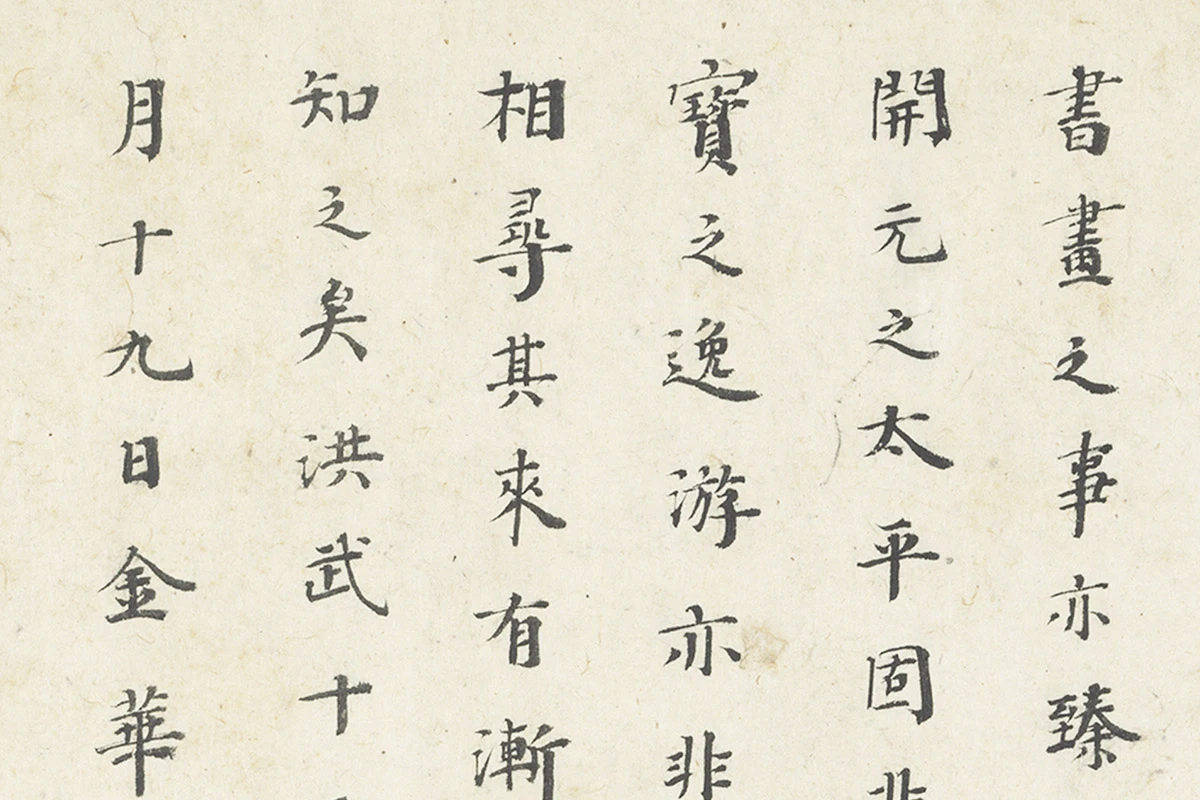 書畫之事亦臻
開元之太平固非
寶之逸游亦非
相尋其來有漸
知之矣洪武十
月十九日金華